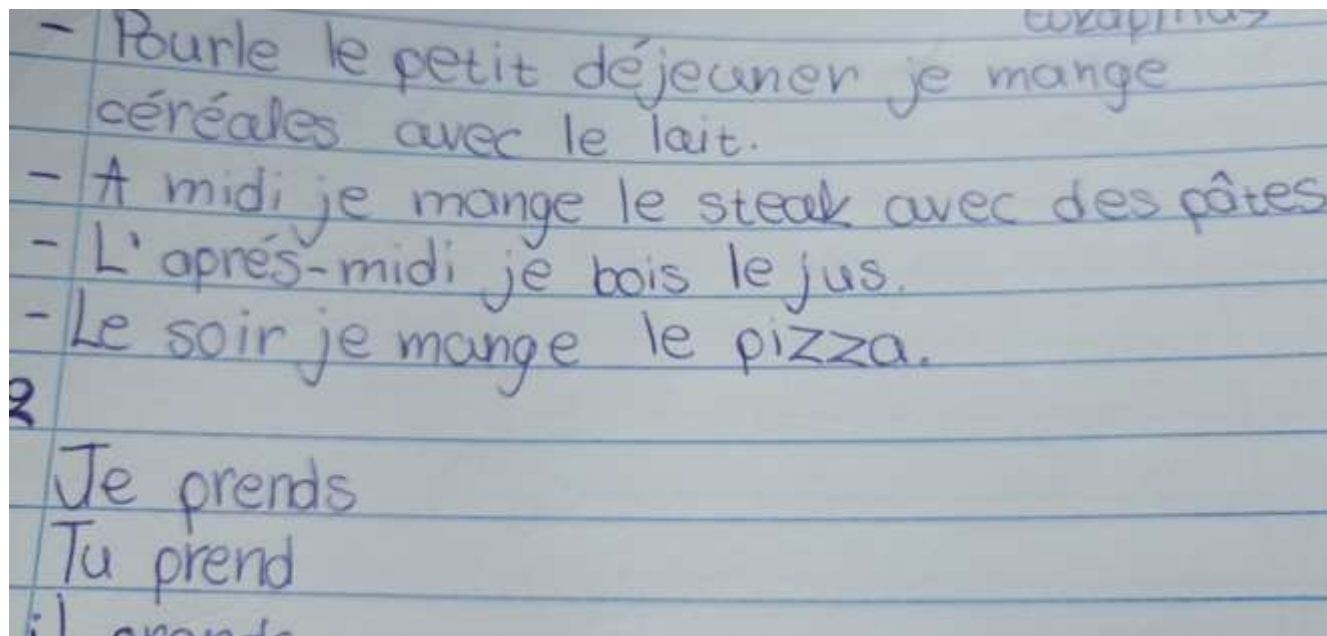 - Pourle le petit déjeuner je mange
céréales avec le lait.
- A midi je mange le steak avec des pâtes
- L'aprés-midi je bois le jus.
- Le soir je mange le pizza.
2
Je prends
Tu prend
il